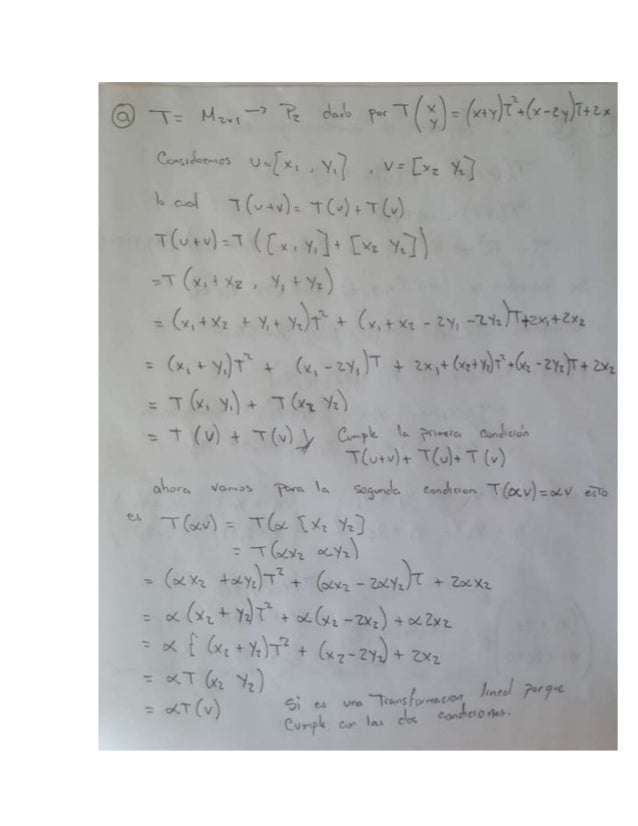 a) T = M2x1 → P2 dado por T(x y) = (x+y)T²+(x-2y)T+2x
Consideremos U=[x1, Y1], V=[x2 Y2]
lo cual T(U+V)= T(U)+T(V)
T(U+V)=T([x1 Y1]+[x2 Y2])
=T(x1+x2, Y1+Y2)
= (x1+x2 + Y1+Y2)T² + (x1+x2 -2Y1 -2Y2)T+2x1+2x2
= (x1+Y1)T² + (x1-2Y1)T + 2x1+(x2+Y2)T²+(x2-2Y2)T+2x2
= T(x1 Y1)+ T(x2 Y2)
= T(U) + T(V) y Cumple la primera Condición
T(U+V)+ T(U)+T(V)
ahora vamos Para la segunda condicion T(αV)=αV esto
es T(αV) = T(α[x2 Y2]
= T(αx2 αY2)
= (αx2 +αY2)T² + (αx2-2αY2)T + 2αx2
= α(x2+Y2)T² + α(x2-2x2)+α2x2
= α[(x2+Y2)T² + (x2-2Y2)+2x2
= αT(x2 Y2)
= αT(V) Si es una Transformacion lineal porque
Cumple con las dos condiciones.